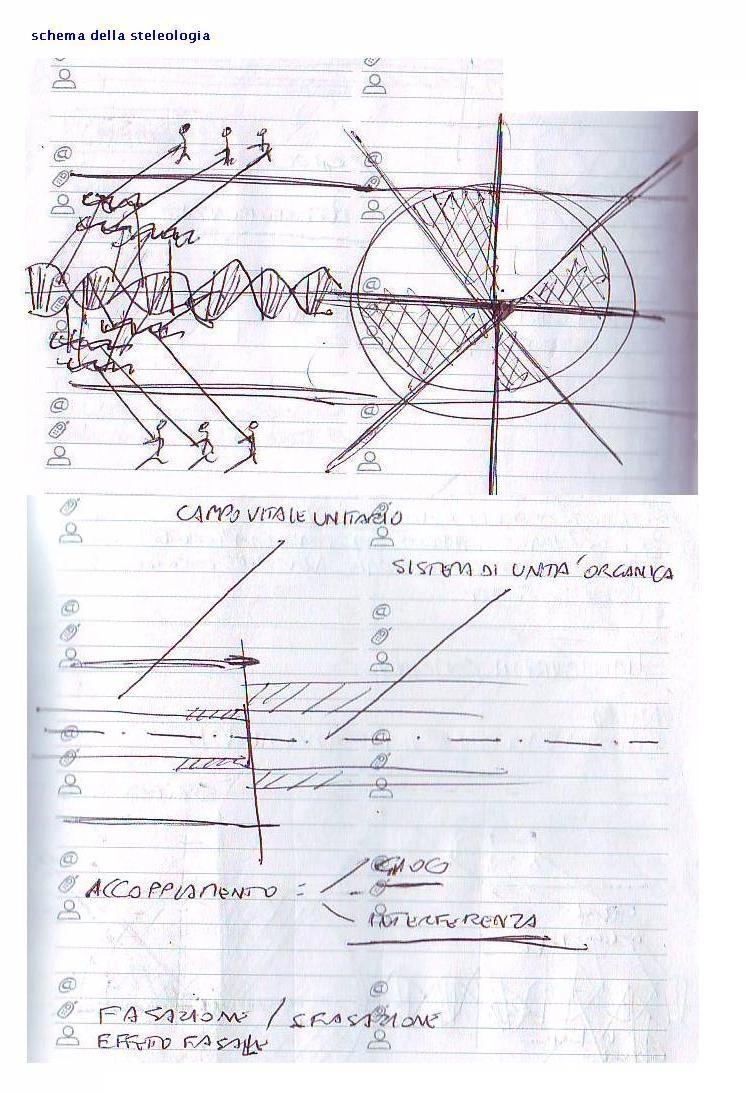 schema della steleologia
CAMPO VITALE UNITARIO
SISTEMA DI UNITA' ORGANICA
ACCOPPIAMENTO =
GIOCO
INTERFERENZA
FASAZIONE / SFASAZIONE
EFFETTO FASALE